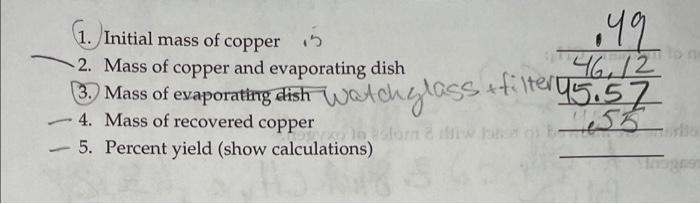 1. Initial mass of copper .5 .49
2. Mass of copper and evaporating dish 46.12
3. Mass of evaporating dish watchglass + filter 45.57
4. Mass of recovered copper .55
5. Percent yield (show calculations)